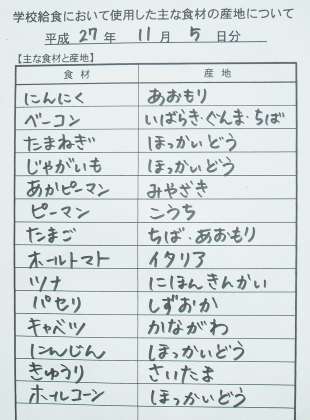 学校給食において使用した主な食材の産地について
平成 27 年 11 月 5 日分
【主な食材と産地】
食材 産地
にんにく あおもり
ベーコン いばらき・ぐんま・ちば
たまねぎ ほっかいどう
じゃがいも ほっかいどう
あかピーマン みやざき
ピーマン こうち
たまご ちば・あおもり
ホールトマト イタリア
ツナ にほんきんかい
パセリ しずおか
キャベツ かながわ
にんじん ほっかいどう
きゅうり さいたま
ホールコーン ほっかいどう